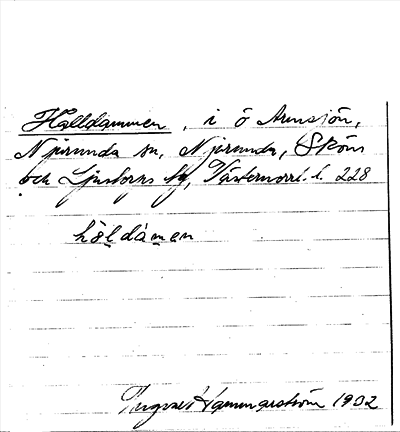 Hälldammen, i ö Armsjön,
Njurunda sn, Njurunda, Sköns
och Ljustorps tg, Västernorrl. l. 228
hä̀ldàmen
Ingvar Hammarström 1932